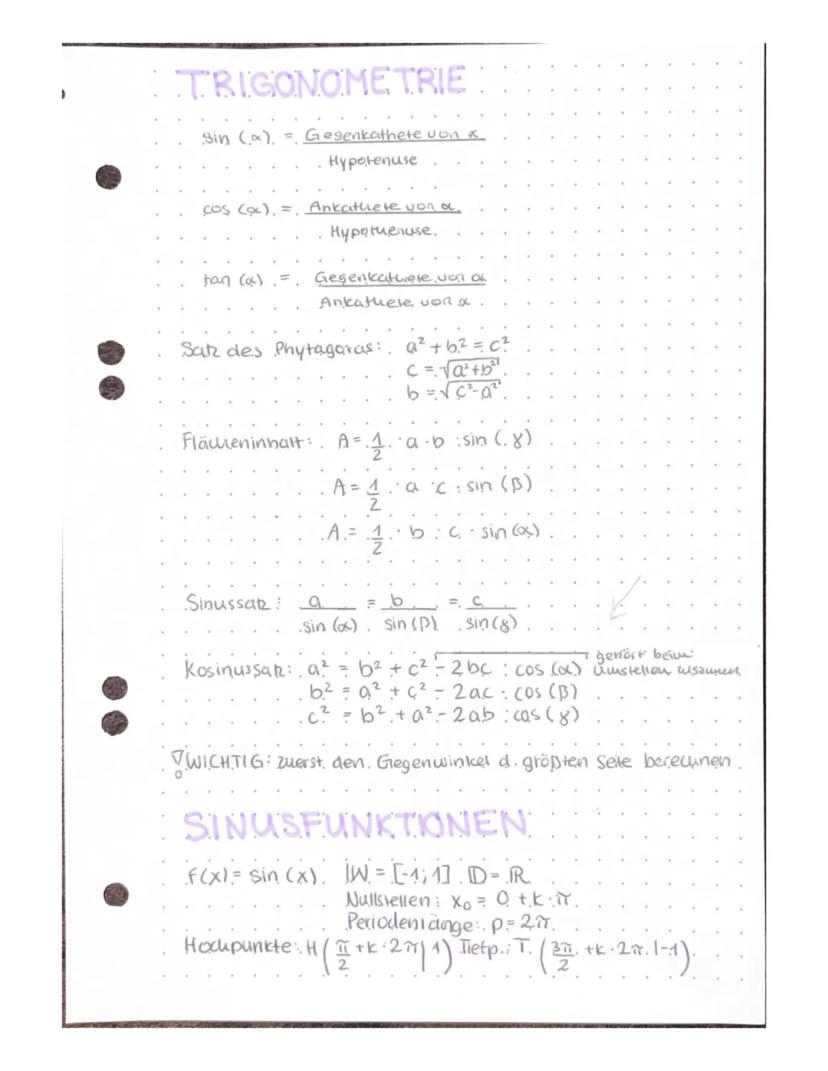 TRIGONOMETRIE
sin (α) = Gegenkathete von α
Hypotenuse
cos (α) = Ankathete von α
Hypothenuse
tan (α) = Gegenkathete von α
Ankathete von α
Satz des Phytagoras: a² + b² = c²
c = √a²+b²
b = √c²-a²
Flächeninhalt: A = 1/2 · a · b · sin (γ)
A = 1/2 · a · c · sin (β)
A = 1/2 · b · c · sin (α)
Sinussatz: a/sin (α) = b/sin (β) = c/sin (γ)
gehört beim
Kosinussatz: a² = b² + c² - 2bc · cos (α) Umstellen zusammen
b² = a² + c² - 2ac · cos (β)
c² = b² + a² - 2ab · cos (γ)
WICHTIG: zuerst den Gegenwinkel d. größten Seite berechnen
SINUSFUNKTIONEN
f(x) = sin (x) W = [-1; 1] D = ℝ
Nullstellen: x₀ = 0 + k · π
Periodenlänge: p = 2π
Hochpunkte: H (π/2 + k · 2π | 1) Tiefp.: T (3π/2 + k · 2π | -1)